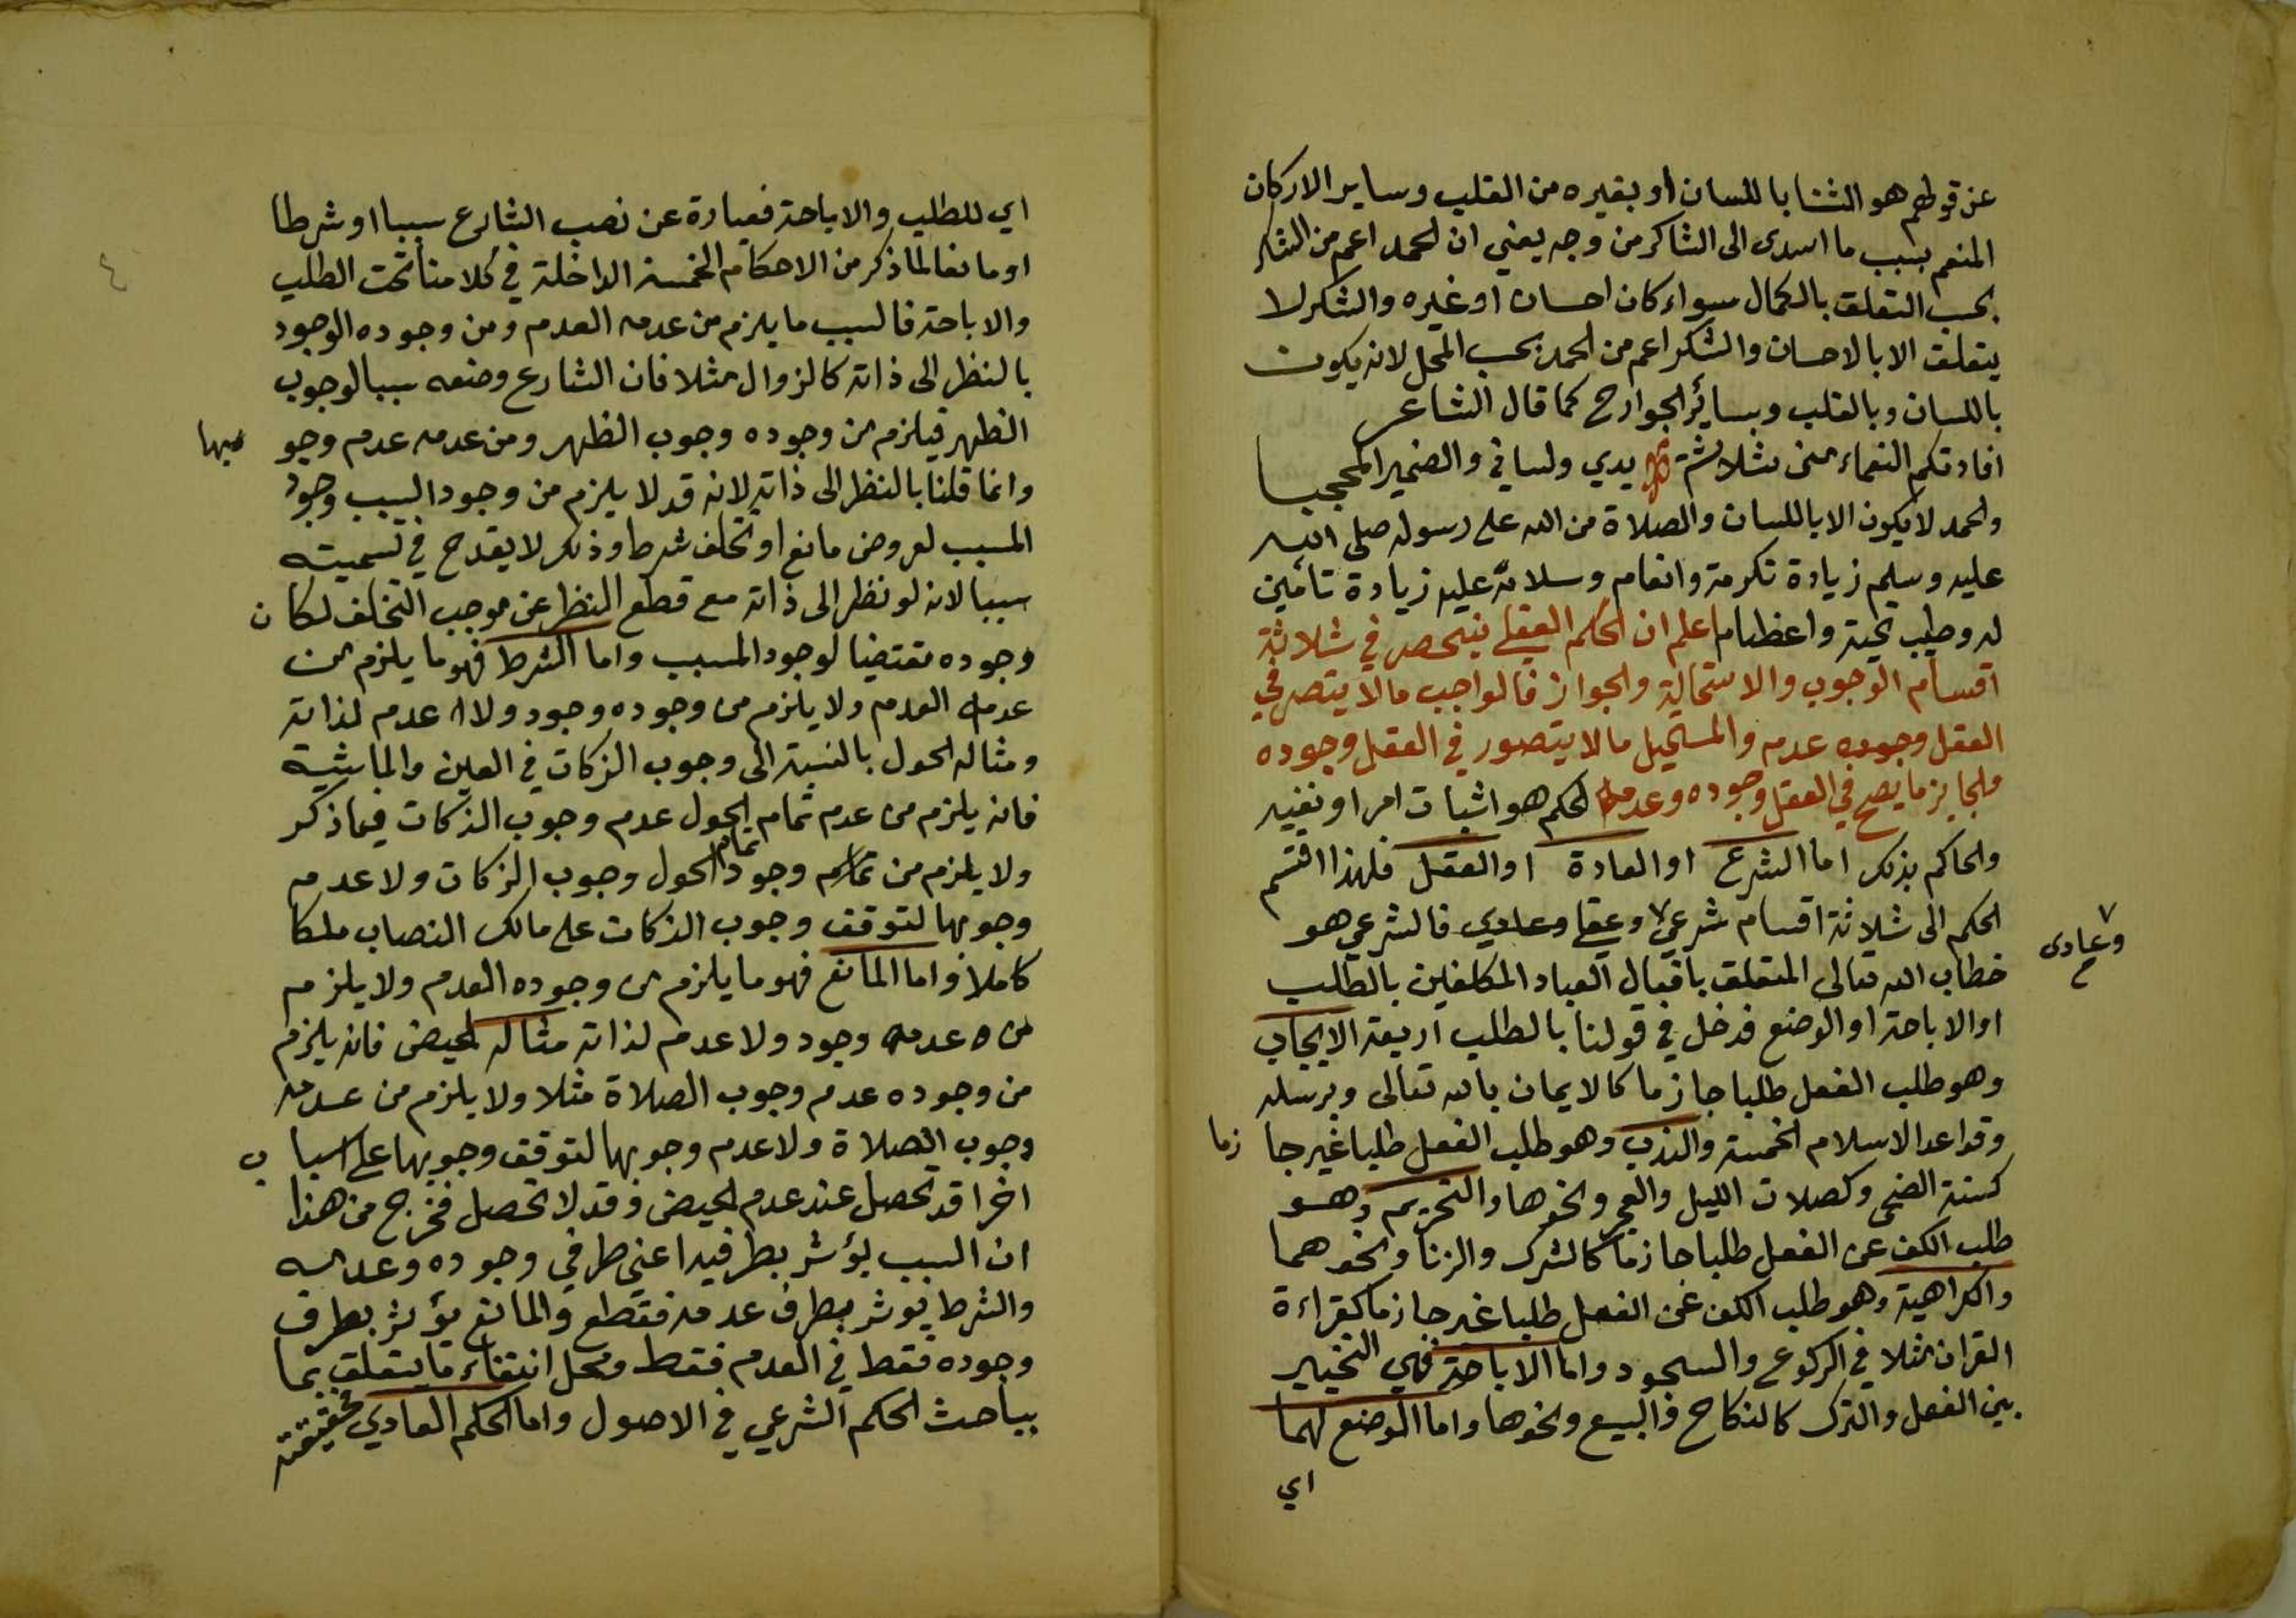 عن قولهم هو الثنا باللسان او بغيره من القلب وساير الاركان
المنعم بسبب ما اسدى الى الشاكر من وجه يعني ان الحمد اعم من الشكر
بحسب التعلق بالكمال سواء كان احسان او غيره والشكر لا
يتعلق الا بالاحسان والشكر اعم من الحمد بحسب المحل لانه يكون
باللسان وبالقلب وبسائر الجوارح كما قال الشاعر
افادتكم النعماء منى ثلاثة يدي ولساني والضمير المحجبا
والحمد لا يكون الا باللسان والصلاة من الله على رسوله صلى الله
عليه وسلم زيادة تكرمة وانعام وسلامه عليه زيادة تامين
له وطيب تحية واعظام اعلم ان الحكم العقلي ينحصر في ثلاثة
اقسام الوجوب والاستحالة والجواز فالواجب مالا يتصر في
العقل وجوده عدمه والمستحيل مالا يتصور في العقل وجوده
والجايز ما يصح في العقل وجوده وعدمه الحكم هو اثبات امر او نفيه
والحاكم بذلك اما الشرع او العادة او العقل فلهذا اقتسم
الحكم الى ثلاثة اقسام شرعي وعقلي وعادي فالشرعي هو
وعادى
خطاب الله تعالى المتعلق بافعال العباد المكلفين بالطلب
او الاباحة او الوضع فدخل في قولنا بالطلب اربعة الايجاب
وهو طلب الفعل طلبا جازما كالايمان بالله تعالى وبرسله
وقواعد الاسلام الخمسة والندب وهو طلب الفعل طلبا غير جا زما
كسنة الضحى وكصلات الليل والفجر ونحوها والتحريم وهو
طلب الكف عن الفعل طلبا جازما كالشرك والزنا ونحوهما
والكراهية وهو طلب الكف عن الفعل طلبا غير جازما كقراءة
القران مثلا في الركوع والسجود واما الاباحة فهي التخيير
بين الفعل والترك كالنكاح والبيع ونحوها واما الوضع لهما
اي
٤
اي للطلب والاباحة فعبارة عن نصب الشارع سببا او شرطا
او مانعا لما ذكر من الاحكام الخمسة الداخلة في كلامنا تحت الطلب
والاباحة فالسبب ما يلزم من عدمه العدم ومن وجوده الوجود
بالنظر الى ذاته كالزوال مثلا فان الشارع وضعه سببا لوجوب
الظهر فيلزم من وجوده وجوب الظهر ومن عدمه عدم وجو بها
وانما قلنا بالنظر الى ذاته لانه قد لا يلزم من وجود السبب وجود
المسبب لعروض مانع او تخلف شرط وذلك لا يقدح في تسميته
سببا لانه لو نظر الى ذاته مع قطع النظر عن موجب التخلف لكان
وجوده مقتضيا لوجود المسبب واما الشرط فهو ما يلزم من
عدمه العدم ولا يلزم من وجوده وجود ولا عدم لذاته
ومثاله الحول بالنسبة الى وجوب الزكات في العين والماشية
فانه يلزم من عدم تمام الحول عدم وجوب الزكات فيما ذكر
ولا يلزم من وجود تمام الحول وجوب الزكات ولا عدمه
وجوبها لتوقف وجوب الزكات على مالك النصاب ملكا
كاملا واما المانع فهو ما يلزم من وجوده العدم ولا يلزم
من عدمه وجود ولا عدم لذاته مثاله الحيض فانه يلزم
من وجوده عدم وجوب الصلاة مثلا ولا يلزم من عدمه
وجوب الصلاة ولا عدم وجوبها لتوقف وجوبها على اسبا ب
اخرا قد تحصل عند عدم الحيض وقد لا تحصل فخرج من هذا
ان السبب يؤثر بطرفيه اعني طرفي وجوده وعدمه
والشرط يوثر بطرف عدمه فقطع والمانع يؤثر بطرف
وجوده فقط في العدم فقط ومحل انتفاء ما يتعلق بما
بباحث الحكم الشرعي في الاصول واما الحكم العادي فحقيقته